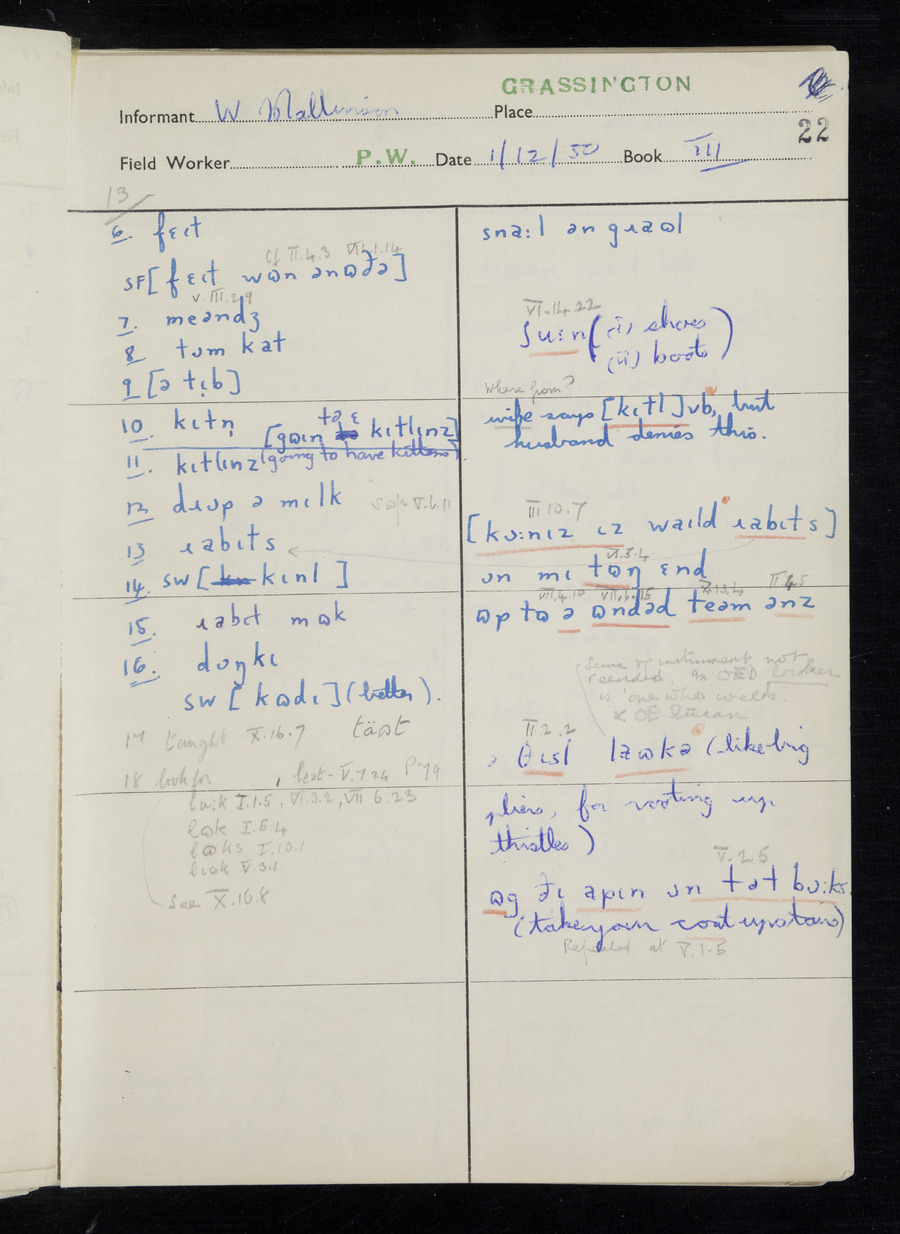 GRASSINGTON
Informant W Mallinson Place
22
Field Worker P.W. Date 1/12/50 Book III
13
6. fɛɪt
Cf II.4.3 VI.1.14
SF[fɛɪt wɷn ənɷðə]
V. III.2.9
7. meəndʒ
8. tɔm kat
9 [ə tɪb]
10. kɪtn̩
[gɷɪn tə ɛ kɪtlɪnz]
11. kɪtlɪnz (going to have kittens)
12 dɹɔp ə mɪlk V.6.11
13 ɹabɪts
14. SW [kɪnl]
15. ɹabɪt mɷk
16. dɔŋkɪ
SW [kɷdɪ] (better).
17 taught X.16.7 täɷt
18 look for, beat - V.7.24 P79
lu:k I.1.5, VI.3.2, VII 6.23
lɷk I.5.4
lɷks I.10.1
lɪɷk V.3.1
See X.16.8
sna:l ən gɹaɷl
VI.14.22
ʃu:n ( (i) shoes
(ii) boots )
Where from?
wife says [kɪtl]ɔb, but
husband denies this.
III 10.7
[kʊ:nɪz ɪz waɪld ɹabɪts]
VI.5.4
ɔn mɪ tɷŋ ɛnd
VII.4.10 VII.1.15 X.13.4 II.4.5
ɷp tɷ ə ɷndəd teəm ənz
Sense of instrument not
recorded, in OED looker
is 'one who weeds'.
< OE lūcan
II.2.2
ə θɪsl laɷkə (like big
pliers, for rooting up
thistles)
V.2.5
ɷg ðɪ apɪn ɔn tət bʊ:ks
(take your coat upstairs)
Repeated at V.1.5